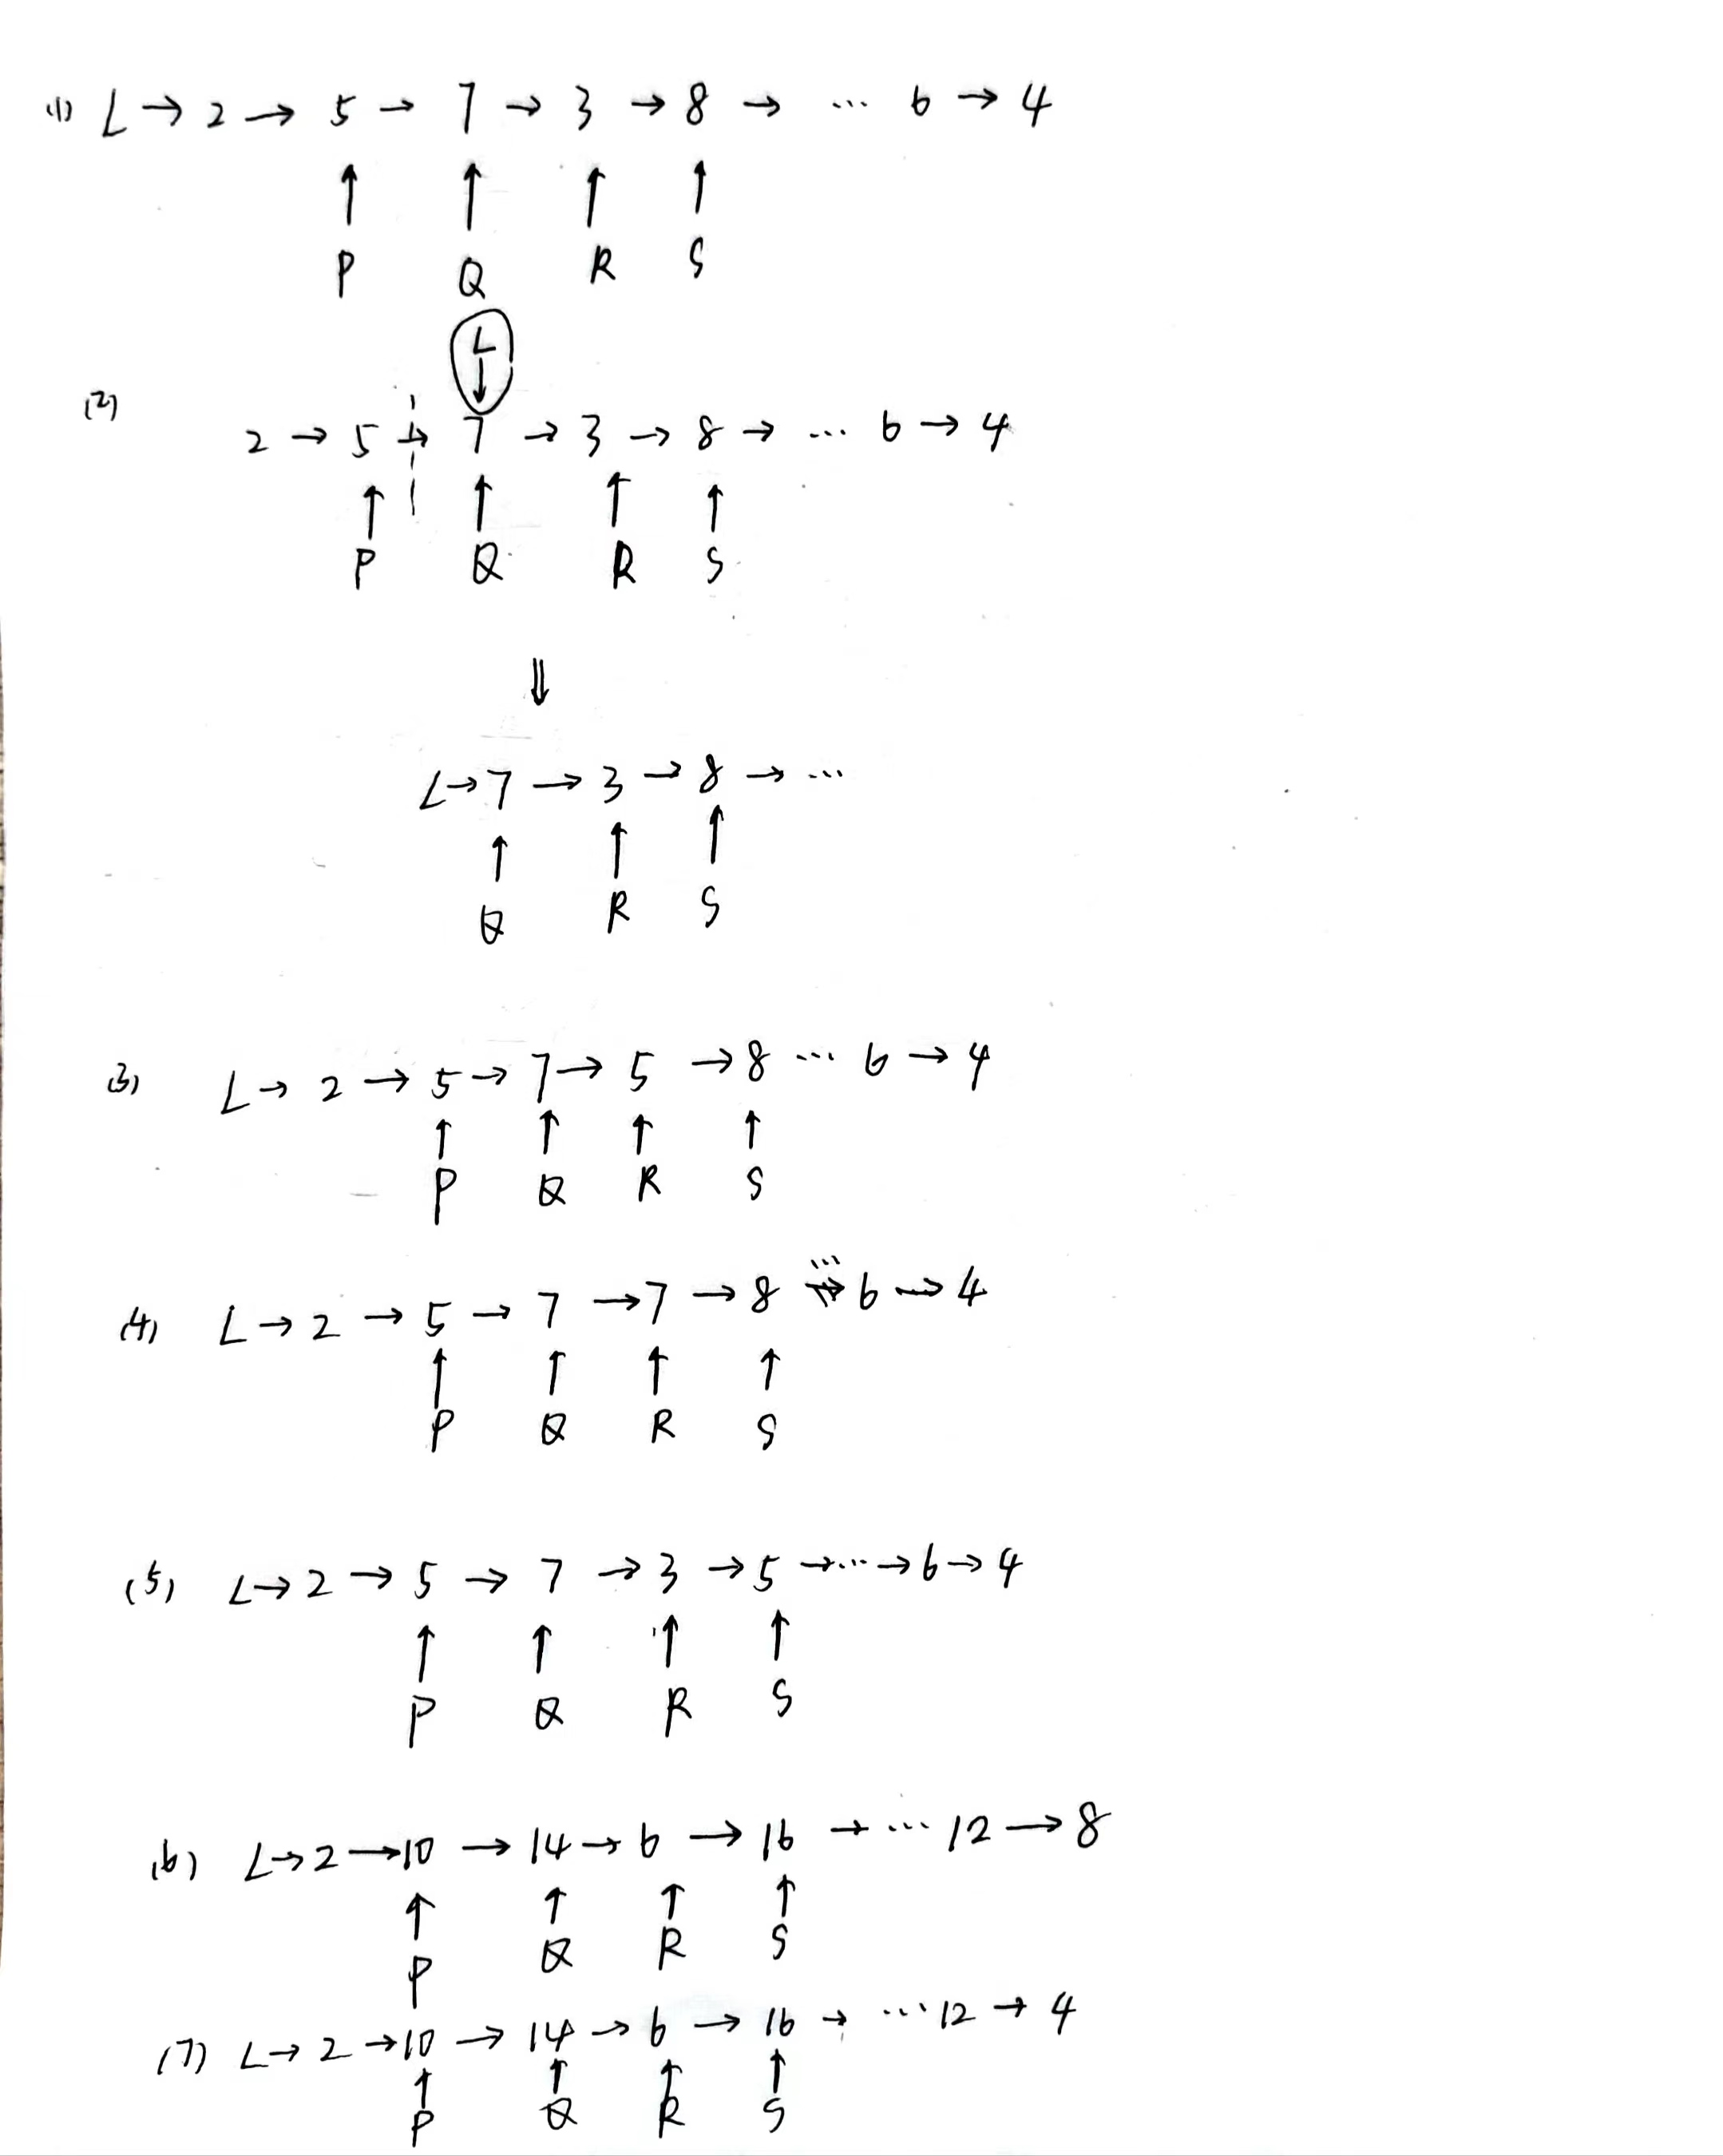 (1) L → 2 → 5 → 7 → 3 → 8 → ... 6 → 4
↑ ↑ ↑ ↑
P Q R S
L
↓
(2) 2 → 5 → 7 → 3 → 8 → ... 6 → 4
↑ ↑ ↑ ↑
P Q R S
⇓
L → 7 → 3 → 8 → ...
↑ ↑ ↑
Q R S
(3) L → 2 → 5 → 7 → 5 → 8 ... 6 → 4
↑ ↑ ↑ ↑
P Q R S
(4) L → 2 → 5 → 7 → 7 → 8 ... → 6 → 4
↑ ↑ ↑ ↑
P Q R S
(5) L → 2 → 5 → 7 → 3 → 5 → ... → 6 → 4
↑ ↑ ↑ ↑
P Q R S
(6) L → 2 → 10 → 14 → 6 → 16 → ... 12 → 8
↑ ↑ ↑ ↑
P Q R S
(7) L → 2 → 10 → 14 → 6 → 16 → ... 12 → 4
↑ ↑ ↑ ↑
P Q R S